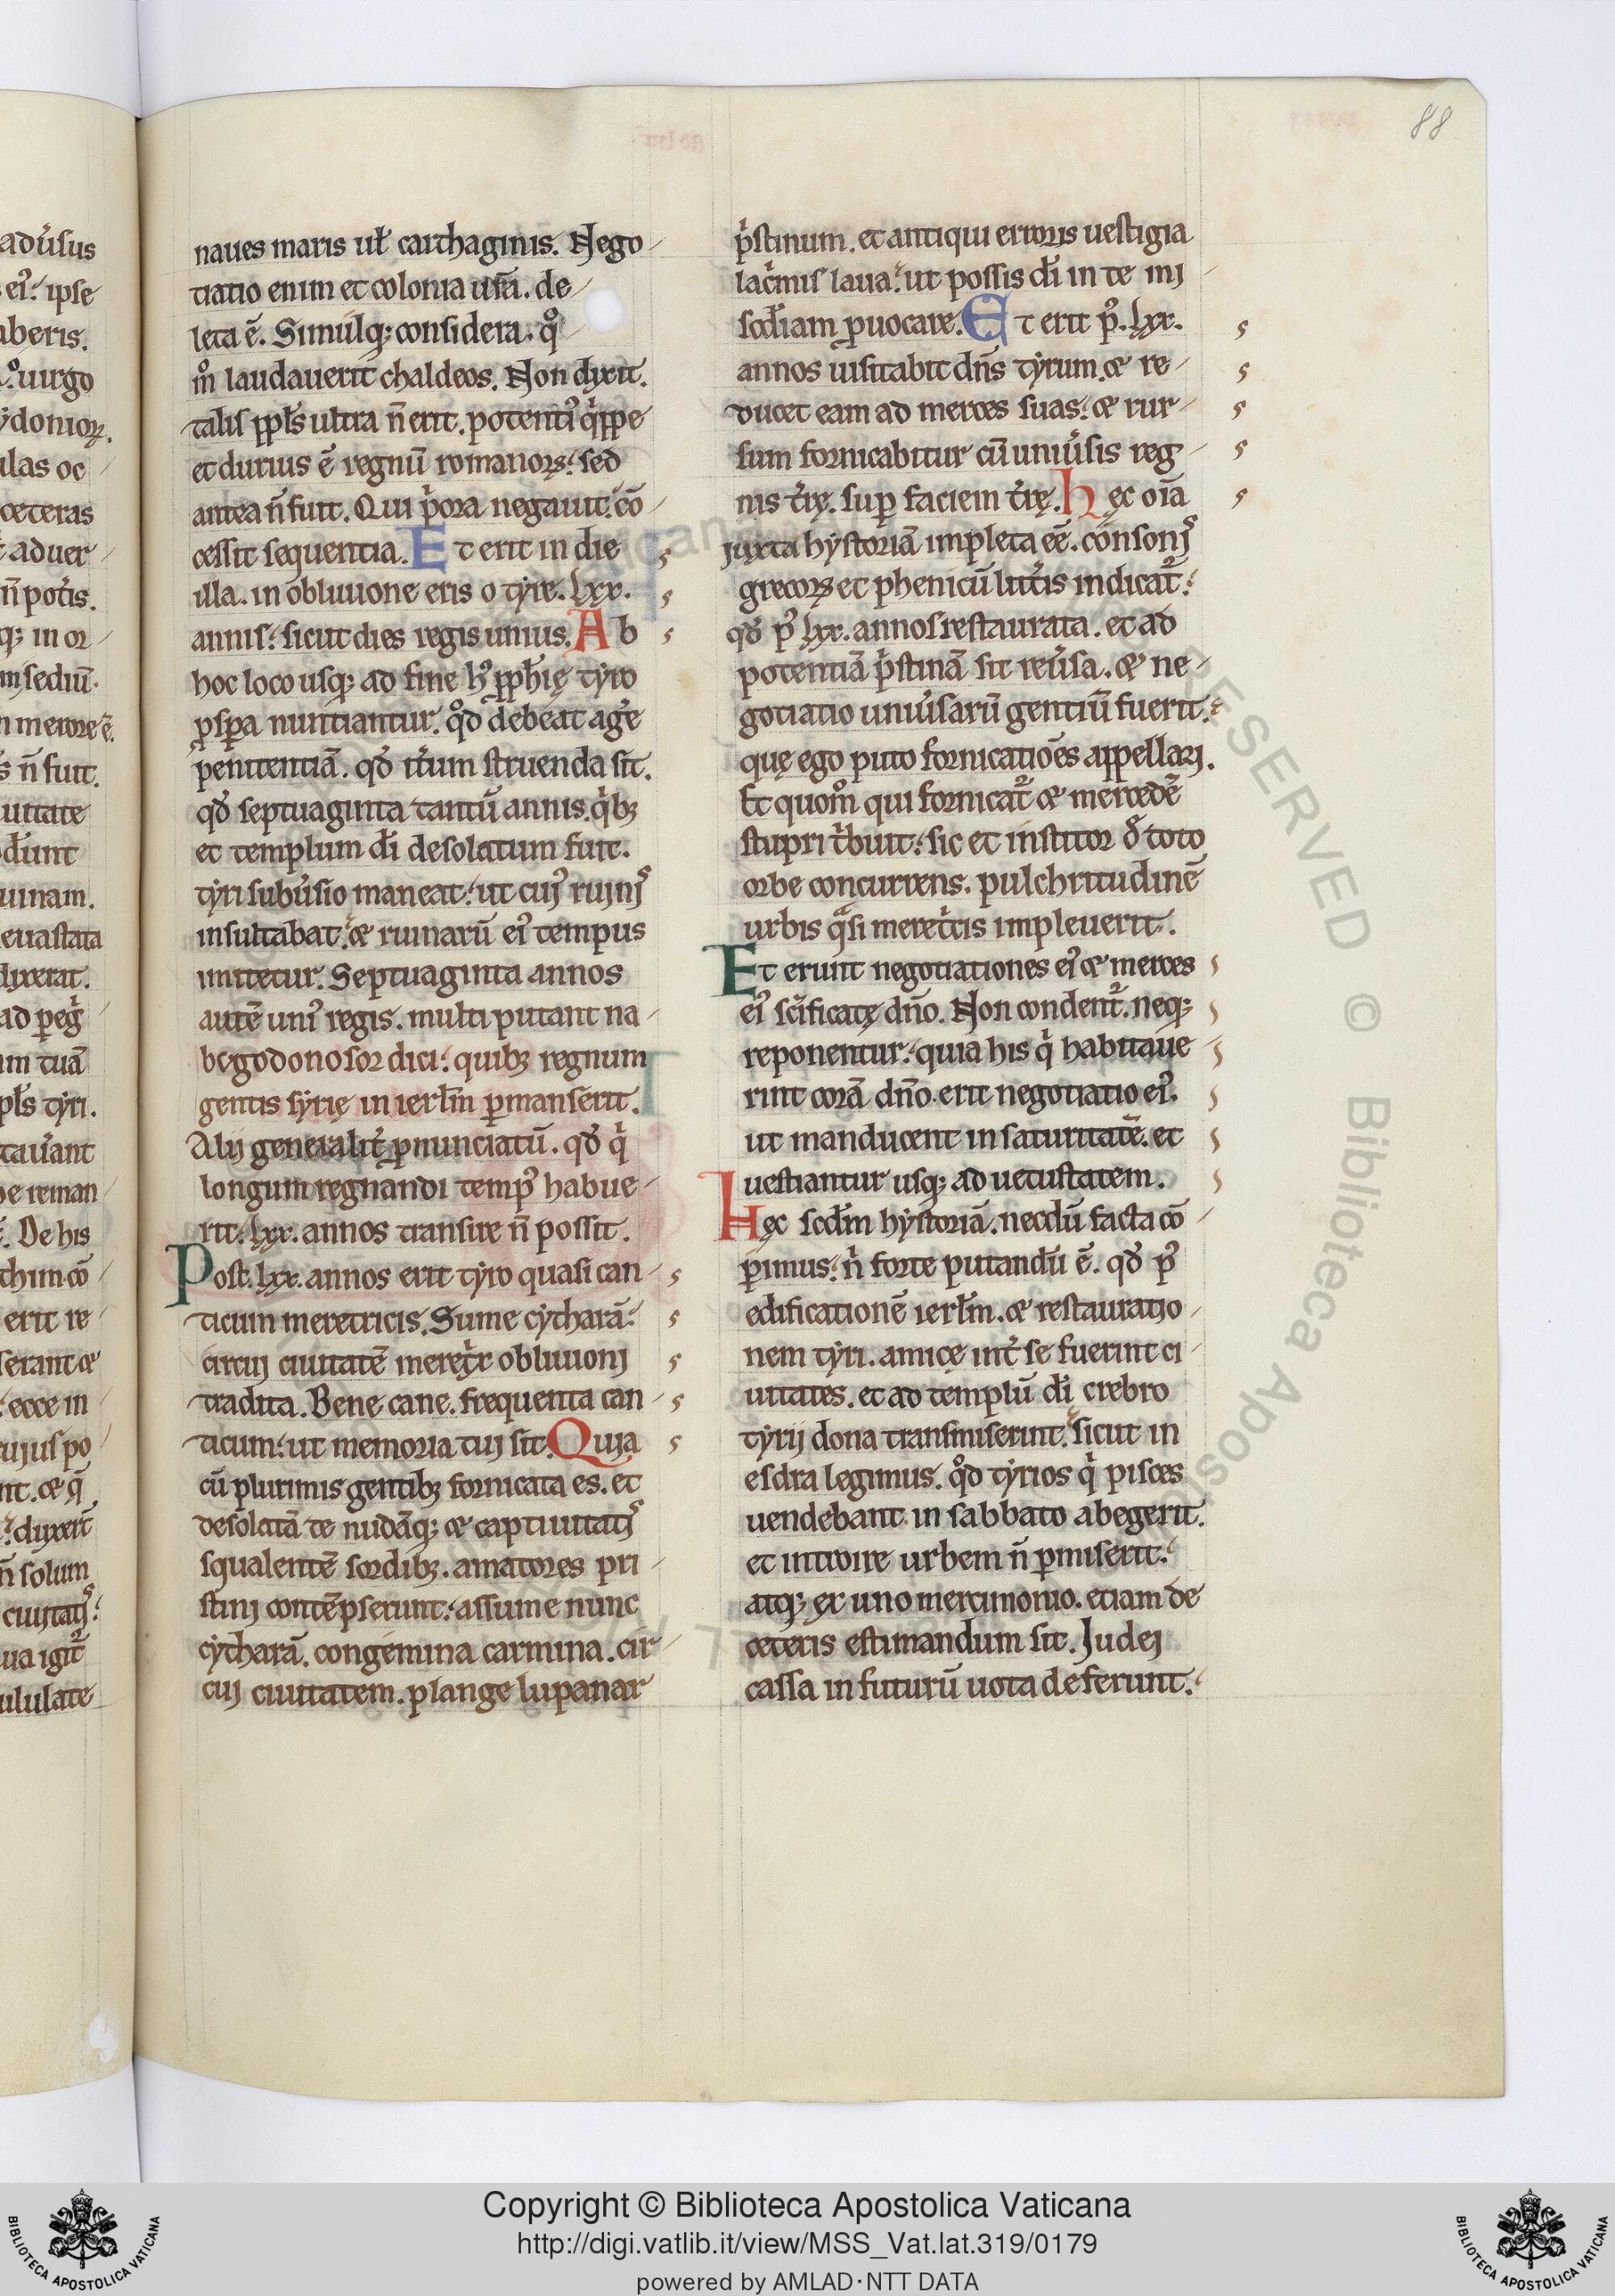 88
naues maris uł carthaginis. Nego
tiatio enim et colonia ur̄a. de
leta ē. Simulq; considera. qͦ
mͦ laudauerit chaldeos. Non dixit.
talis pp̄ls ultra n̄ erit. potentiꝰ qͥppe
et durius ē regnū romanoꝝ: sed
antea n̄ fuit. Qui pͥora negauit: cō
cessit sequentia. Et erit in die
illa. in obliuione eris o tyre. lxx.
annis: sicut dies regis unius. Ab
hoc loco usq; ad fine hꝰ pp̄hię tyro
ꝓspa nuntiantur. qͦd debeat agʼe
penitentiā. qđ itʼum struenda sit.
qđ septuaginta tantū annis. qͥbꝫ
et templum d̄i desolatum fuit.
tyri subuʼsio maneat: ut cuiꝰ ruinis
insultabat: & ruinarū eiꝰ tempus
imitetur. Septuaginta annos
autē uniꝰ regis. multi putant na
bogodonosor dici: quibꝫ regnum
gentis syrię in ierl̄m ꝑmanserit.
Alii generalitʼ ꝓnunciatū. qđ qͥ
longum regnandi tempꝰ habue
rit. lxx. annos transire n̄ possit.
Post. lxx. annos erit tyro quasi can
ticum meretricis. Sume cytharā:
circui ciuitatē meretͥx obliuioni
tradita. Bene cane. frequenta can
ticum: ut memoria tui sit. Quia
cū plurimis gentibꝫ fornicata es. et
desolatā te nudāq; & captiuitatis
squalentē sordibꝫ. amatores pri
stini contēpserunt: assume nunc
cytharā. congemina carmina. cir
cui ciuitatem. plange lupanar
pͥstinum. et antiqui erroris uestigia
lacͥmis laua: ut possis d̄i in te mi
scd̄iam ꝓuocare. Et erit pꝰ. lxx.
annos uisitabit dn̄s tyrum. & re
ducet eam ad merces suas: & rur
sum fornicabitur cū uniuʼsis reg
nis tʼrę. suꝑ faciem tʼrę. hęc oīa
iuxta hystoriā impleta eē. consonis
grecoꝝ et phenicū littʼis indicat᷑:
qđ pꝰ lxx. annos restaurata. et ad
potentiā pͥstinā sit reuʼsa. & ne
gotiatio uniuʼsarū gentiū fuerit:
quę ego puto fornicatiōes appellari.
Et quomͦ qui fornicat᷑ & mercedē
stupri tͥbuit: sic et institor đ toto
orbe concurrens. pulchritudinē
urbis qͣsi meretͥcis impleuerit.
Et erunt negotiationes eiꝰ & merces
eiꝰ sc̄ificatę dn̄o. Non condent᷑. neq;
reponentur: quia his qͥ habitaue
rint corā dn̄o. erit negotiatio eiꝰ.
ut manducent in saturitatē. et
uestiantur usq; ad uetustatem.
Hęc scd̄m hystoriā. necdū facta cō
ꝑimus: nͥ forte putandū ē. qđ pꝰ
edificationē ierl̄m. & restauratio
nem tyri. amicę intʼ se fuerint ci
uitates. et ad templū d̄i crebro
tyrii dona transmiserint: sicut in
esdra legimus. qͦd tyrios qͥ pisces
uendebant in sabbato abegerit.
et introire urbem n̄ ꝑmiserit:
atq; ex uno mercimonio. etiam de
ceteris estimandum sit. Judei
cassa in futurū uota deferunt:
Copyright © Biblioteca Apostolica Vaticana
http://digi.vatlib.it/view/MSS_Vat.lat.319/0179
powered by AMLAD·NTT DATA
BIBLIOTECA APOSTOLICA VATICANA
BIBLIOTECA APOSTOLICA VATICANA